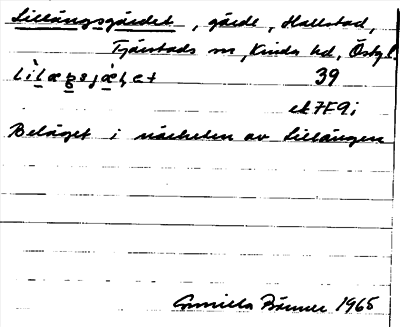 Lillängsgärdet, gärde, Hallstad,
Tjärstads sn, Kinda hd, Östgl.
39
ek 7F9i
Beläget i närheten av Lillängen
Gunilla 1965